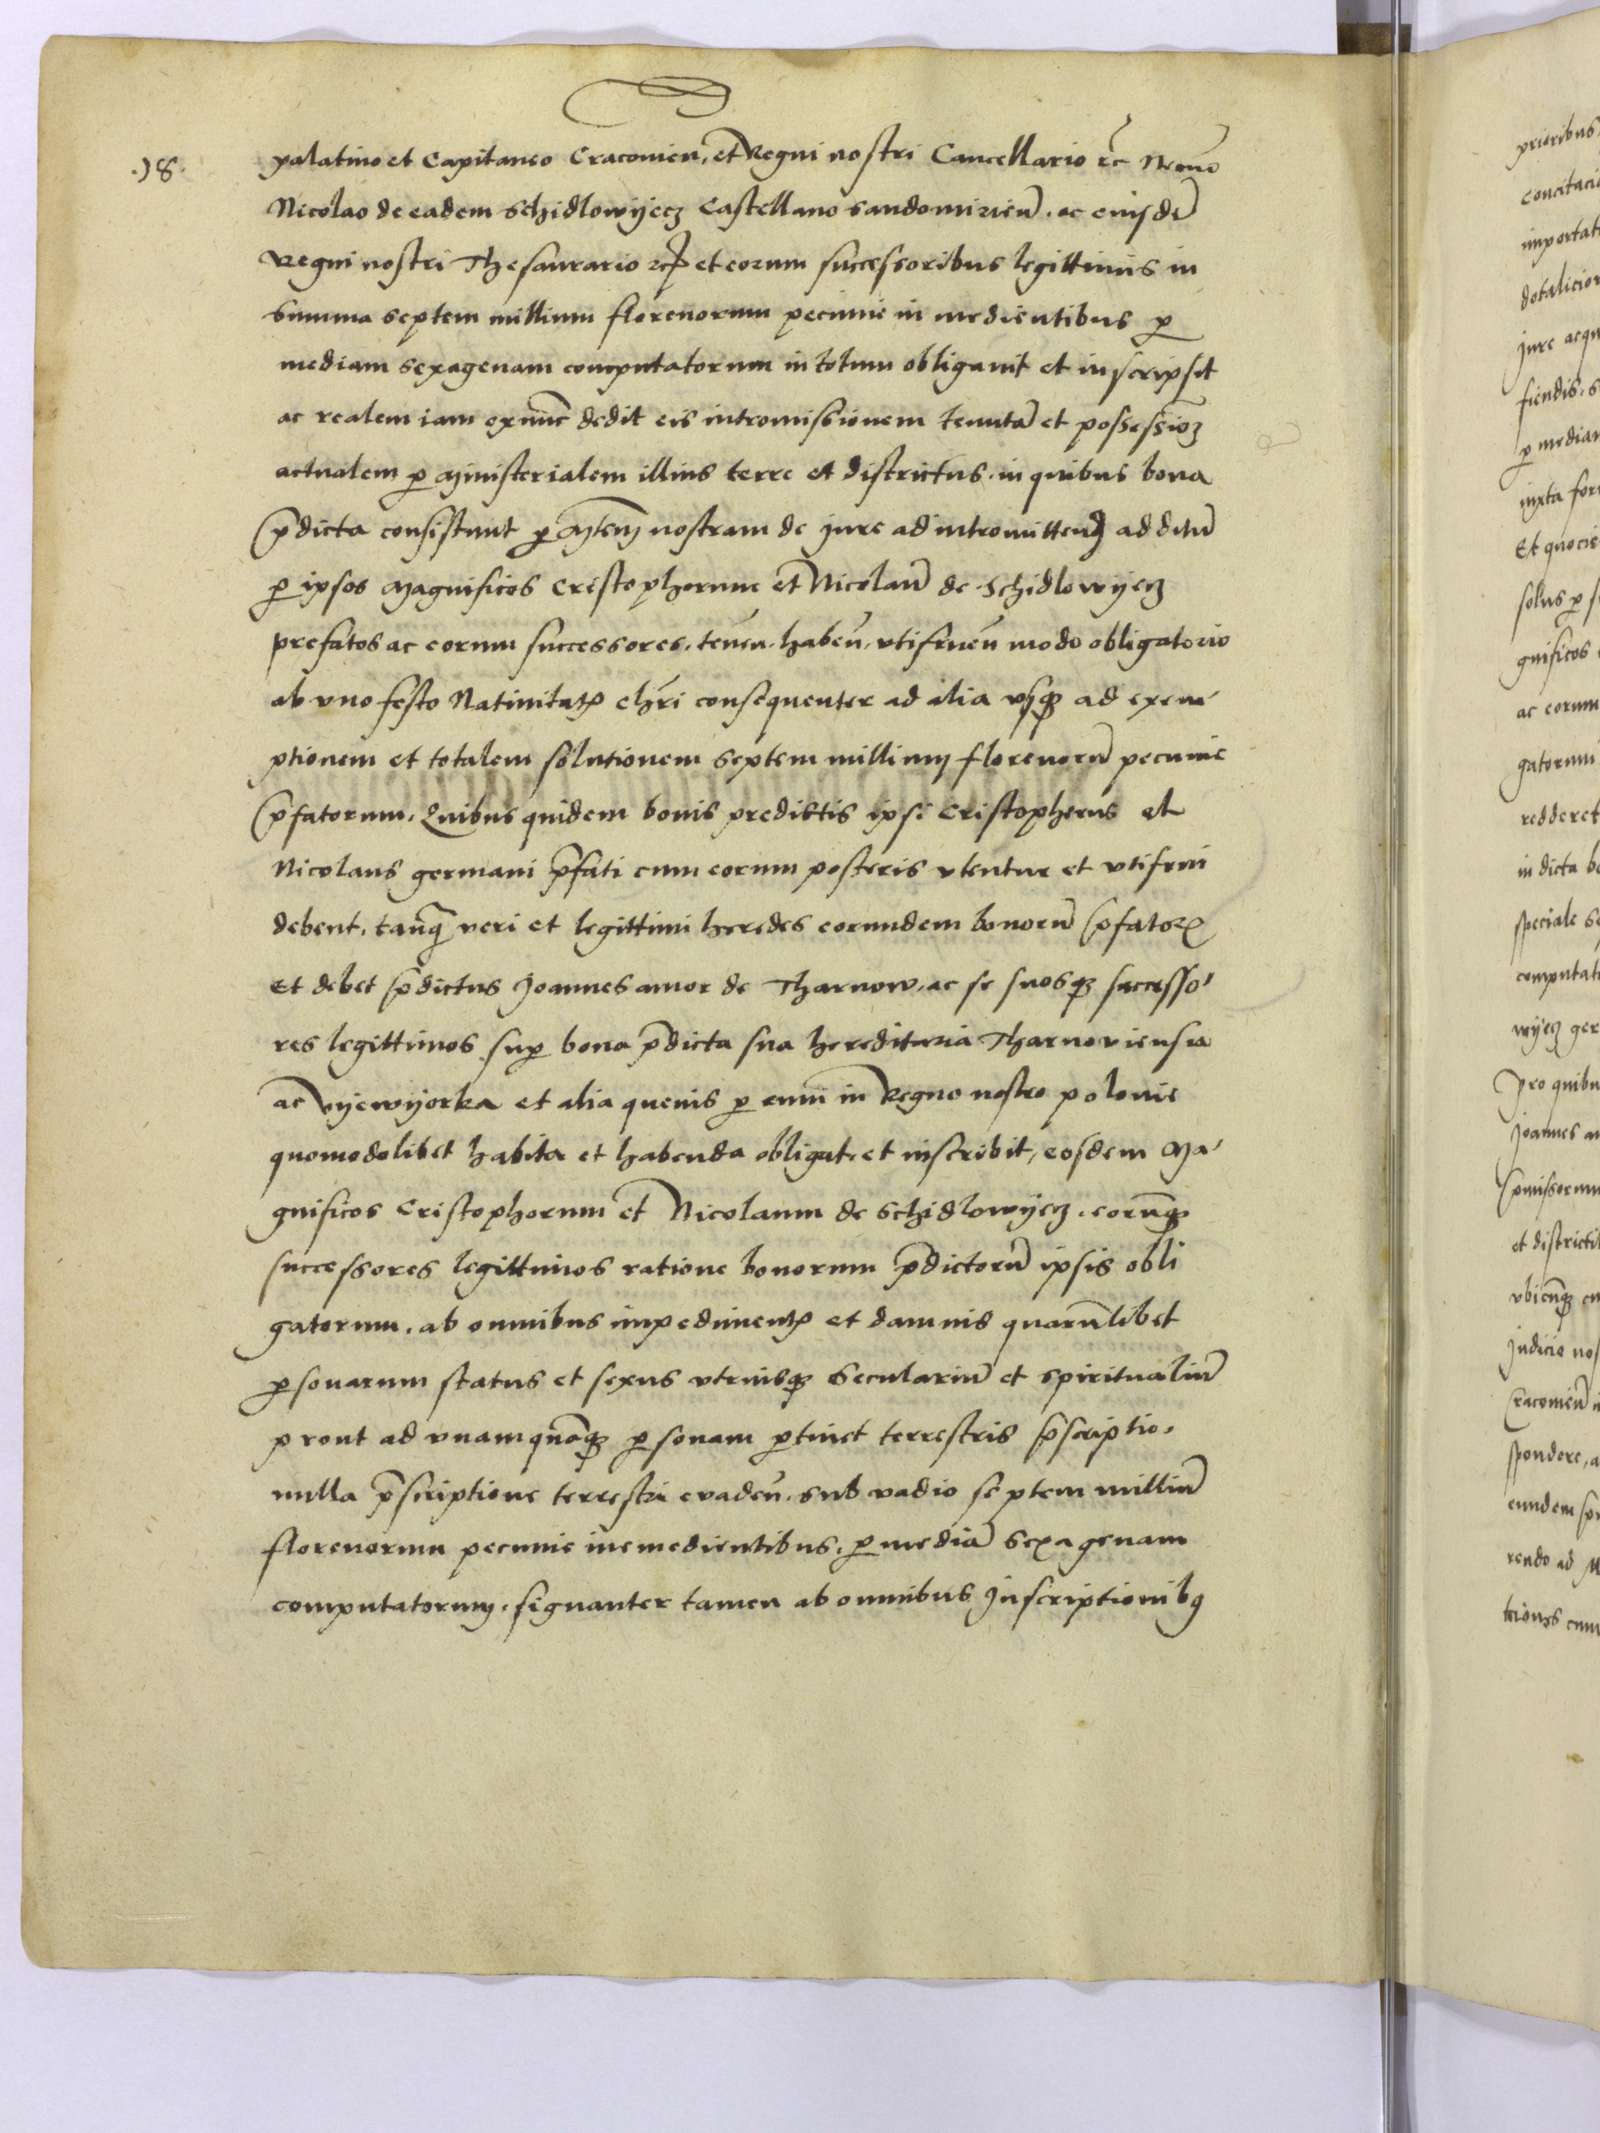 .18.
palatino et Capitaneo Cracovien, et Regni nostri Cancellario rc Necnō
Nicolao de eadem Schidlowyecz Castellano Sandomirieñ. ac eiusdē
Regni nostri Thesaurario et eorum successoribus legittimis in
summa septem millium florenorum pecunie in medientibus p
mediam sexagenam computatorum in totum obligavit et inscripsit
ac realem iam exnūc dedit eis intromissionem tenutā et possessioɜ
actualem p Ministerialem illius terre et districtus. in quibus bona
p̄dicta consistunt p Mtem nostram de Jure ad intromittenđ additū
p ipsos Magnificos Cristophorum et Nicolaū de Schidlowyecz
prefatos ac eorum successores. teneñ. habeñ. utifrueñ modo obligatorio
ab uno festo Nativitatꝭ chr̄i consequenter ad alia usqɜ ad exem
ptionem et totalem solutionem septem millium florenorū pecunie
p̄fatorum. Quibus quidem bonis predictis ipsi Cristopherus et
Nicolaus germani p̄fati cum eorum posteris utentur et utifrui
debent. tanq̄ veri et legittimi heredes eorundem bonorū p̄fatoꝝ
Et debet p̄dictus Joannes amor de Tharnow. ac se suosqɜ successo
res legittimos sup bona p̄dicta sua hereditaria Tharnoviensia
ac Vyewyorka et alia quevis p eum in Regno nostro polonie
quomodolibet habita et habenda obligat. et inscribit, eosdem Ma
gnificos Cristophorum et Nicolaum de Schidlowyecz. eorūqɜ
successores legittimos ratione bonorum p̄dictorū ipsis obli
gatorum. ab omnibus impedimentꝭ et damnis quarūlibet
psonarum status et sexus utriusqɜ Seculariū et Spiritualiū
prout ad unamquāqɜ psonam ptinet terrestris p̄scriptio.
nulla p̄scriptione terrestri evadeñ. sub vadio septem milliū
florenorum pecunie inmedientibus. p mediā sexagenam
computatorum. signanter tamen ab omnibus Inscriptionibꝫ